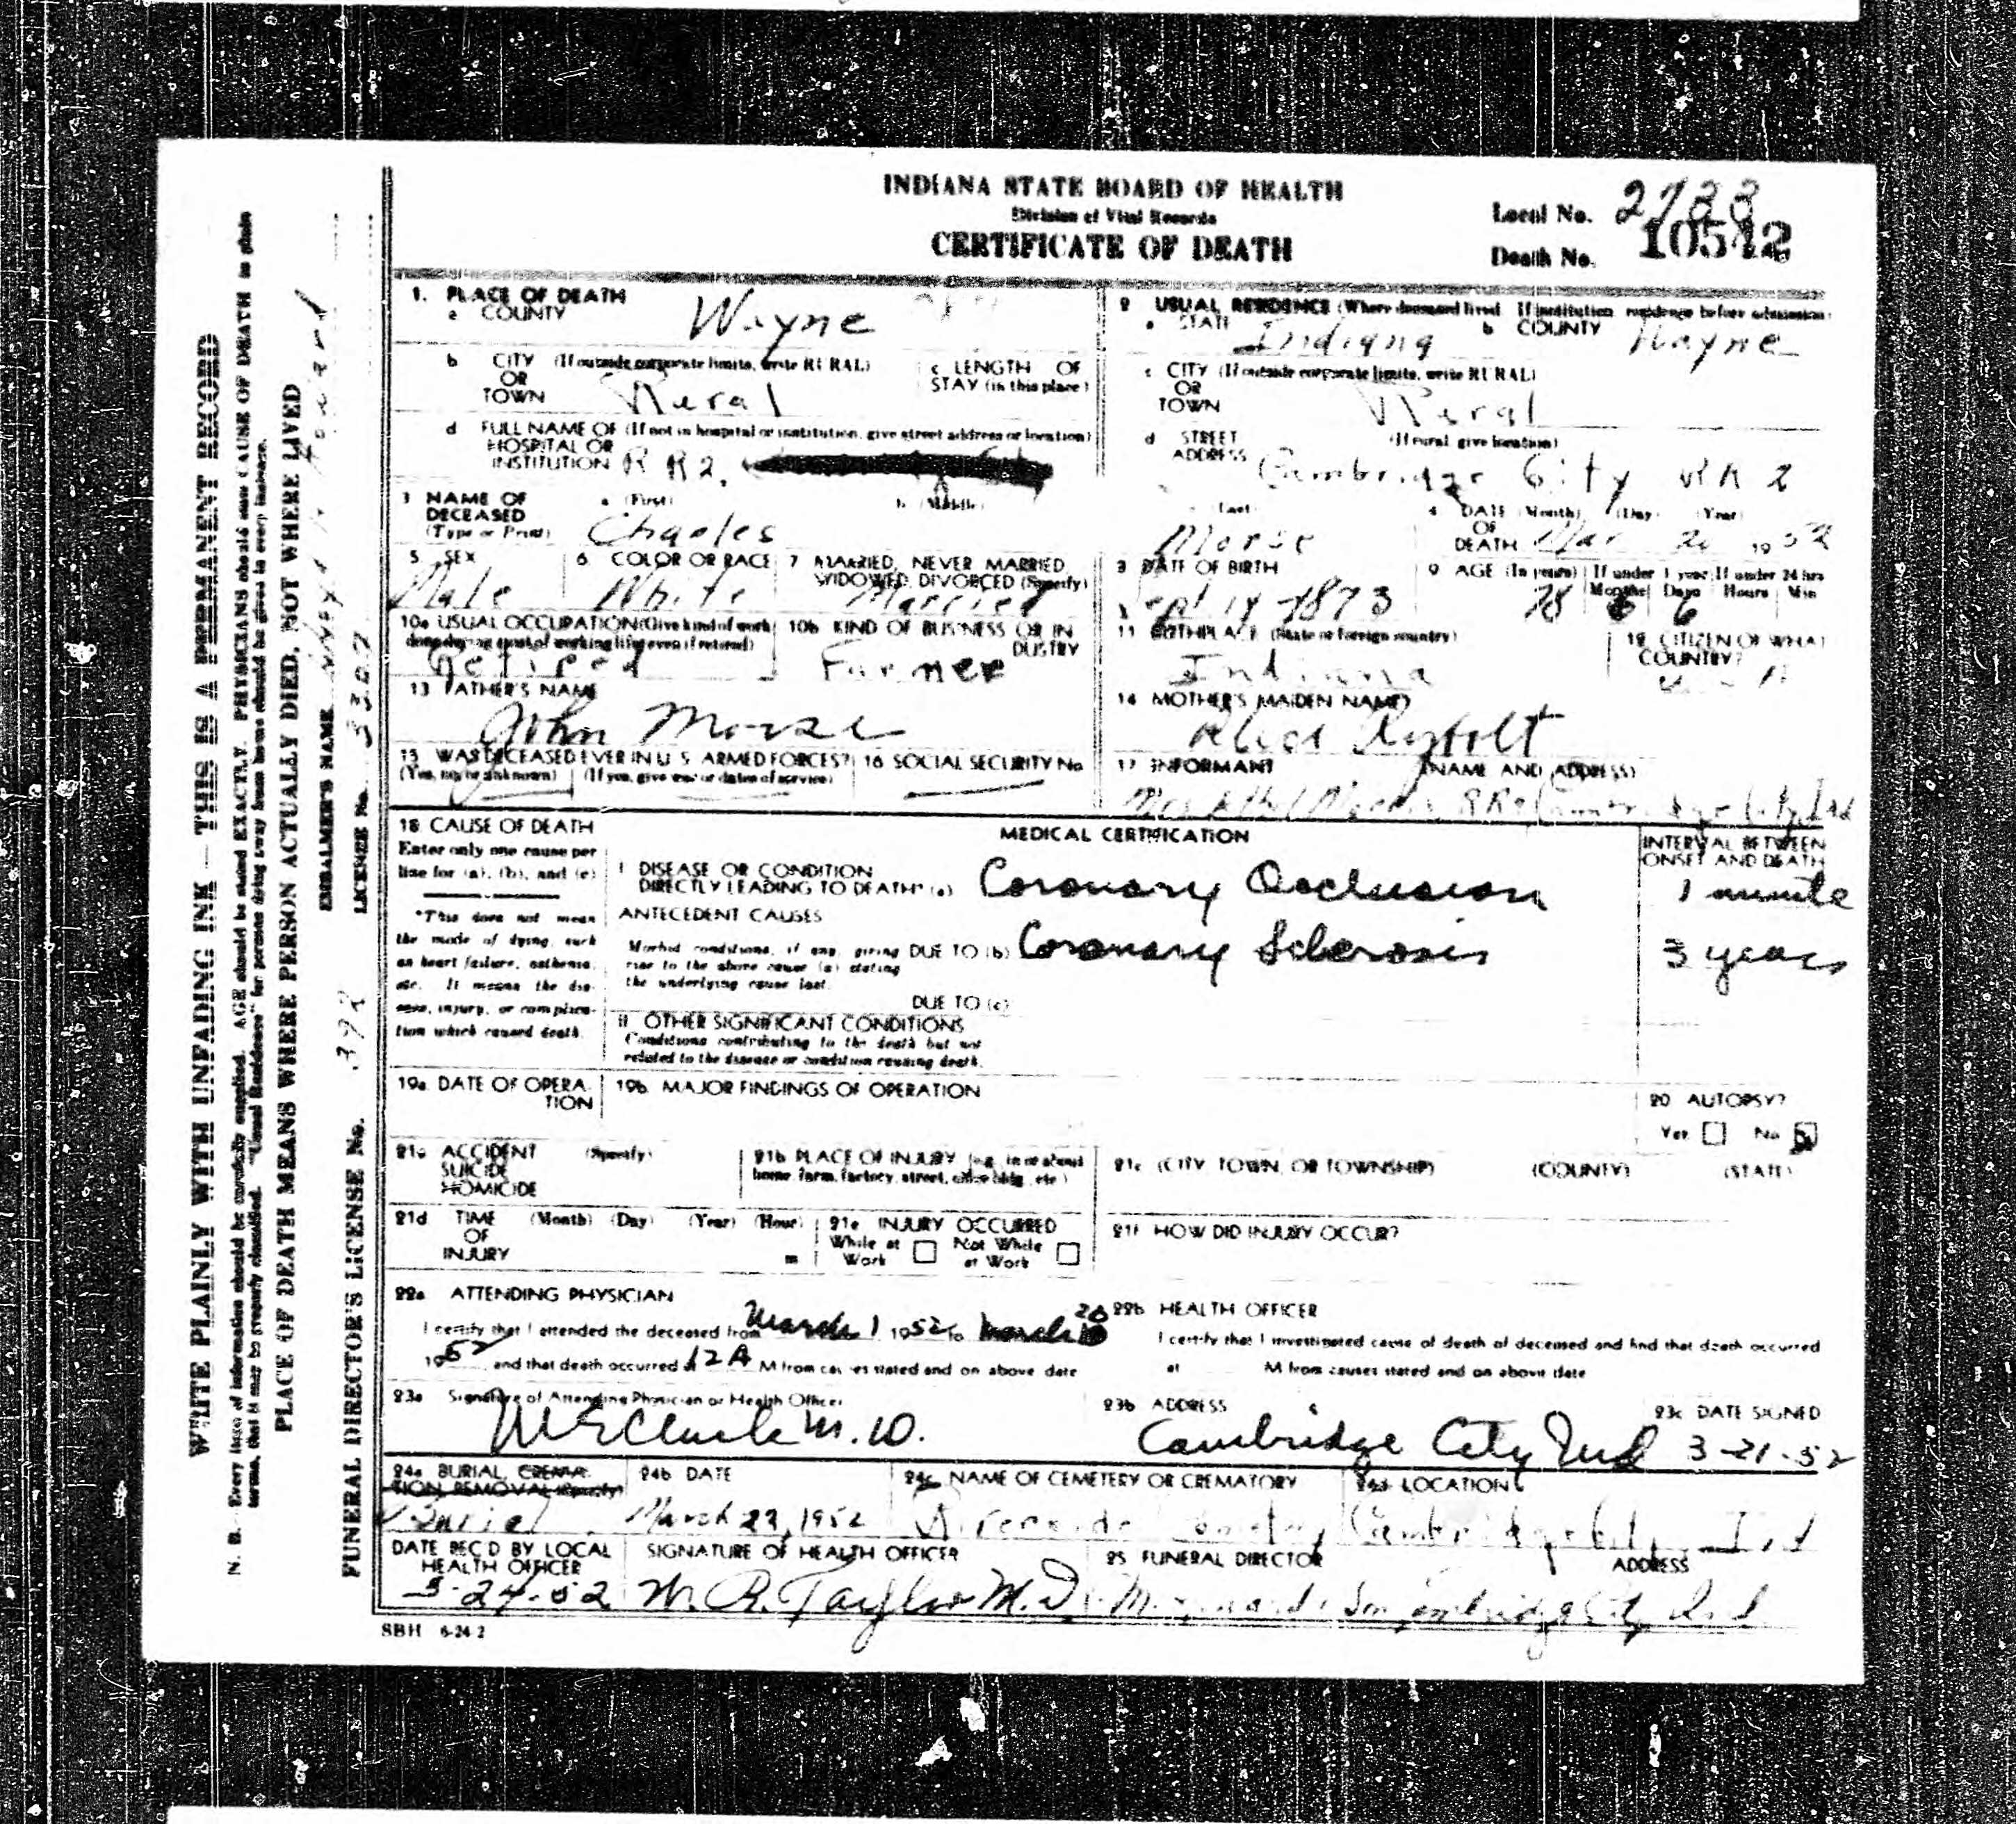 INDIANA STATE BOARD OF HEALTH
Division of Vital Records
CERTIFICATE OF DEATH
Local No. 2733
Death No. 10542
1. PLACE OF DEATH
a COUNTY Wayne
2 USUAL RESIDENCE (Where deceased lived If institution residence before admission)
a STATE Indiana b COUNTY Wayne
b CITY (If outside corporate limits, write RURAL) OR TOWN Rural
c LENGTH OF STAY (in this place)
c CITY (If outside corporate limits, write RURAL) OR TOWN Rural
d FULL NAME OF (If not in hospital or institution, give street address or location)
HOSPITAL OR INSTITUTION R R 2,
d STREET ADDRESS (If rural give location) Cambridge City RR 2
3 NAME OF DECEASED (Type or Print) a (First) b (Middle) c (Last)
Charles Morse
4 DATE OF DEATH (Month) (Day) (Year) Mar 20 1952
5 SEX Male
6 COLOR OR RACE White
7 MARRIED, NEVER MARRIED, WIDOWED, DIVORCED (Specify) Married
8 DATE OF BIRTH Sept 14-1873
9 AGE (In years) If under 1 year If under 24 hrs
Months Days Hours Min
78 6 6
10a USUAL OCCUPATION (Give kind of work done during most of working life, even if retired) Retired
10b KIND OF BUSINESS OR INDUSTRY Farmer
11 BIRTHPLACE (State or foreign country) Indiana
12 CITIZEN OF WHAT COUNTRY?
13 FATHER'S NAME John Morse
14 MOTHER'S MAIDEN NAME Alice
15 WAS DECEASED EVER IN U. S. ARMED FORCES?
(Yes, no, or unknown) (If yes, give war or dates of service)
16 SOCIAL SECURITY No
17 INFORMANT (NAME AND ADDRESS)
Mrs Cambridge City, Ind
18 CAUSE OF DEATH
Enter only one cause per line for (a), (b), and (c)
*This does not mean the mode of dying, such as heart failure, asthenia, etc. It means the disease, injury, or complication which caused death.
MEDICAL CERTIFICATION
INTERVAL BETWEEN ONSET AND DEATH
I DISEASE OR CONDITION DIRECTLY LEADING TO DEATH* (a) Coronary Occlusion 1 minute
ANTECEDENT CAUSES
Morbid conditions, if any, giving rise to the above cause (a) stating the underlying cause last.
DUE TO (b) Coronary Sclerosis 3 years
DUE TO (c)
II OTHER SIGNIFICANT CONDITIONS
Conditions contributing to the death but not related to the disease or condition causing death.
19a DATE OF OPERATION
19b MAJOR FINDINGS OF OPERATION
20 AUTOPSY?
Yes No
21a ACCIDENT SUICIDE HOMICIDE (Specify)
21b PLACE OF INJURY (e.g. in or about home, farm, factory, street, office bldg., etc.)
21c (CITY, TOWN, OR TOWNSHIP) (COUNTY) (STATE)
21d TIME OF INJURY (Month) (Day) (Year) (Hour) m
21e INJURY OCCURRED
While at Work Not While at Work
21f HOW DID INJURY OCCUR?
22a ATTENDING PHYSICIAN
I certify that I attended the deceased from March 1 1952 to March 20
1952, and that death occurred at 12 A M from causes stated and on above date
22b HEALTH OFFICER
I certify that I investigated cause of death of deceased and find that death occurred
at M from causes stated and on above date
23a Signature of Attending Physician or Health Officer
M.D.
23b ADDRESS Cambridge City Ind
23c DATE SIGNED 3-21-52
24a BURIAL, CREMATION, REMOVAL (Specify) Burial
24b DATE March 23, 1952
24c NAME OF CEMETERY OR CREMATORY Riverside Cemetery
24d LOCATION Cambridge City, Ind
DATE REC'D BY LOCAL HEALTH OFFICER 3-24-52
SIGNATURE OF HEALTH OFFICER W. R. Taylor M.D.
25 FUNERAL DIRECTOR ADDRESS
Son, Cambridge City Ind
SBH 6-24-2
WRITE PLAINLY WITH UNFADING INK — THIS IS A PERMANENT RECORD
N. B. Every item of information should be carefully supplied. AGE should be stated EXACTLY. PHYSICIANS should state CAUSE OF DEATH in plain
terms, that it may be properly classified. "Usual Residence" for persons dying away from home should be given in every instance.
PLACE OF DEATH MEANS WHERE PERSON ACTUALLY DIED, NOT WHERE LIVED
EMBALMER'S NAME
FUNERAL DIRECTOR'S LICENSE No. 392 LICENSE No. 3302